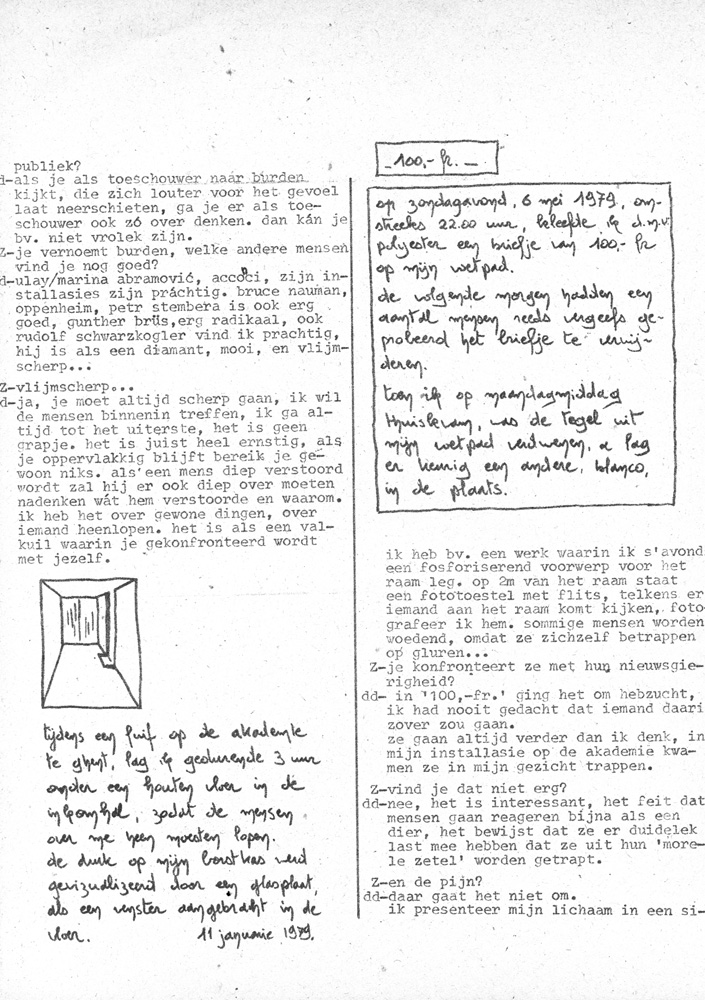 publiek?
d-als je als toeschouwer naar burden
kijkt, die zich louter voor het gevoel
laat neerschieten, ga je er als toe-
schouwer ook zó over denken. dan kán je
bv. niet vrolek zijn.
Z-je vernoemt burden, welke andere mensen
vind je nog goed?
d-ulay/marina abramović, accoci, zijn in-
stallasies zijn práchtig. bruce nauman,
oppenheim, petr stembera is ook erg
goed, gunther brüs,erg radikaal, ook
rudolf schwarzkogler vind ik prachtig,
hij is als een diamant, mooi, en vlijm-
scherp...
Z-vlijmscherp...
d-ja, je moet altijd scherp gaan, ik wil
de mensen binnenin treffen, ik ga al-
tijd tot het uiterste, het is geen
grapje. het is juist heel ernstig, als
je oppervlakkig blijft bereik je ge-
woon niks. als een mens diep verstoord
wordt zal hij er ook diep over moeten
nadenken wát hem verstoorde en waarom.
ik heb het over gewone dingen, over
iemand heenlopen. het is als een val-
kuil waarin je gekonfronteerd wordt
met jezelf.
tijdens een fuif op de akademie
te ghent, lag ik gedurende 3 uur
onder een houten vloer in de
inkomhal, zodat de mensen
over me heen moesten lopen.
de druk op mijn borstkas werd
gevizualizeerd door een glasplaat,
als een venster aangebracht in de
vloer. 11 januarie 1979.
100,- fr.
op zondagavond, 6 mei 1979, om-
streeks 22.00 uur, kleefde ik d.m.v.
polyester een briefje van 100,- fr
op mijn voetpad.
de volgende morgen hadden een
aantal mensen reeds vergeefs ge-
probeerd het briefje te verwij-
deren.
toen ik op maandagmiddag
thuiskwam, was de tegel uit
mijn voetpad verdwenen, er lag
er keurig een andere, blanco,
in de plaats.
ik heb bv. een werk waarin ik s'avond
een fosforiserend voorwerp voor het
raam leg. op 2m van het raam staat
een fototoestel met flits, telkens er
iemand aan het raam komt kijken, foto
grafeer ik hem. sommige mensen worden
woedend, omdat ze zichzelf betrappen
op gluren...
Z-je konfronteert ze met hun nieuwsgie-
righeid?
dd- in '100,-fr.' ging het om hebzucht,
ik had nooit gedacht dat iemand daari
zover zou gaan.
ze gaan altijd verder dan ik denk, in
mijn installasie op de akademie kwa-
men ze in mijn gezicht trappen.
Z-vind je dat niet erg?
dd-nee, het is interessant, het feit dat
mensen gaan reageren bijna als een
dier, het bewijst dat ze er duidelek
last mee hebben dat ze uit hun 'more-
le zetel' worden getrapt.
Z-en de pijn?
dd-daar gaat het niet om.
ik presenteer mijn lichaam in een si-